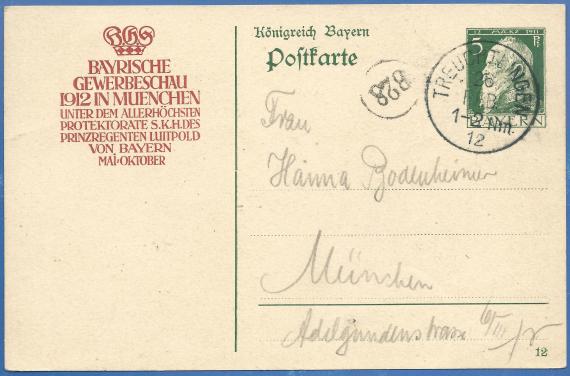 BAYRISCHE
GEWERBESCHAU
1912 IN MUENCHEN
UNTER DEM ALLERHÖCHSTEN
PROTEKTORATE S.K.H. DES
PRINZREGENTEN LUITPOLD
VON BAYERN
MAI-OKTOBER
Königreich Bayern
Postkarte
12 MÄRZ 1911
5 Pf
BAYERN
TREUCHTLINGEN
26
FEB
1-2 Nm.
12
828
Frau
Hanna Bodenheimer
München
Adelgundenstrasse
12